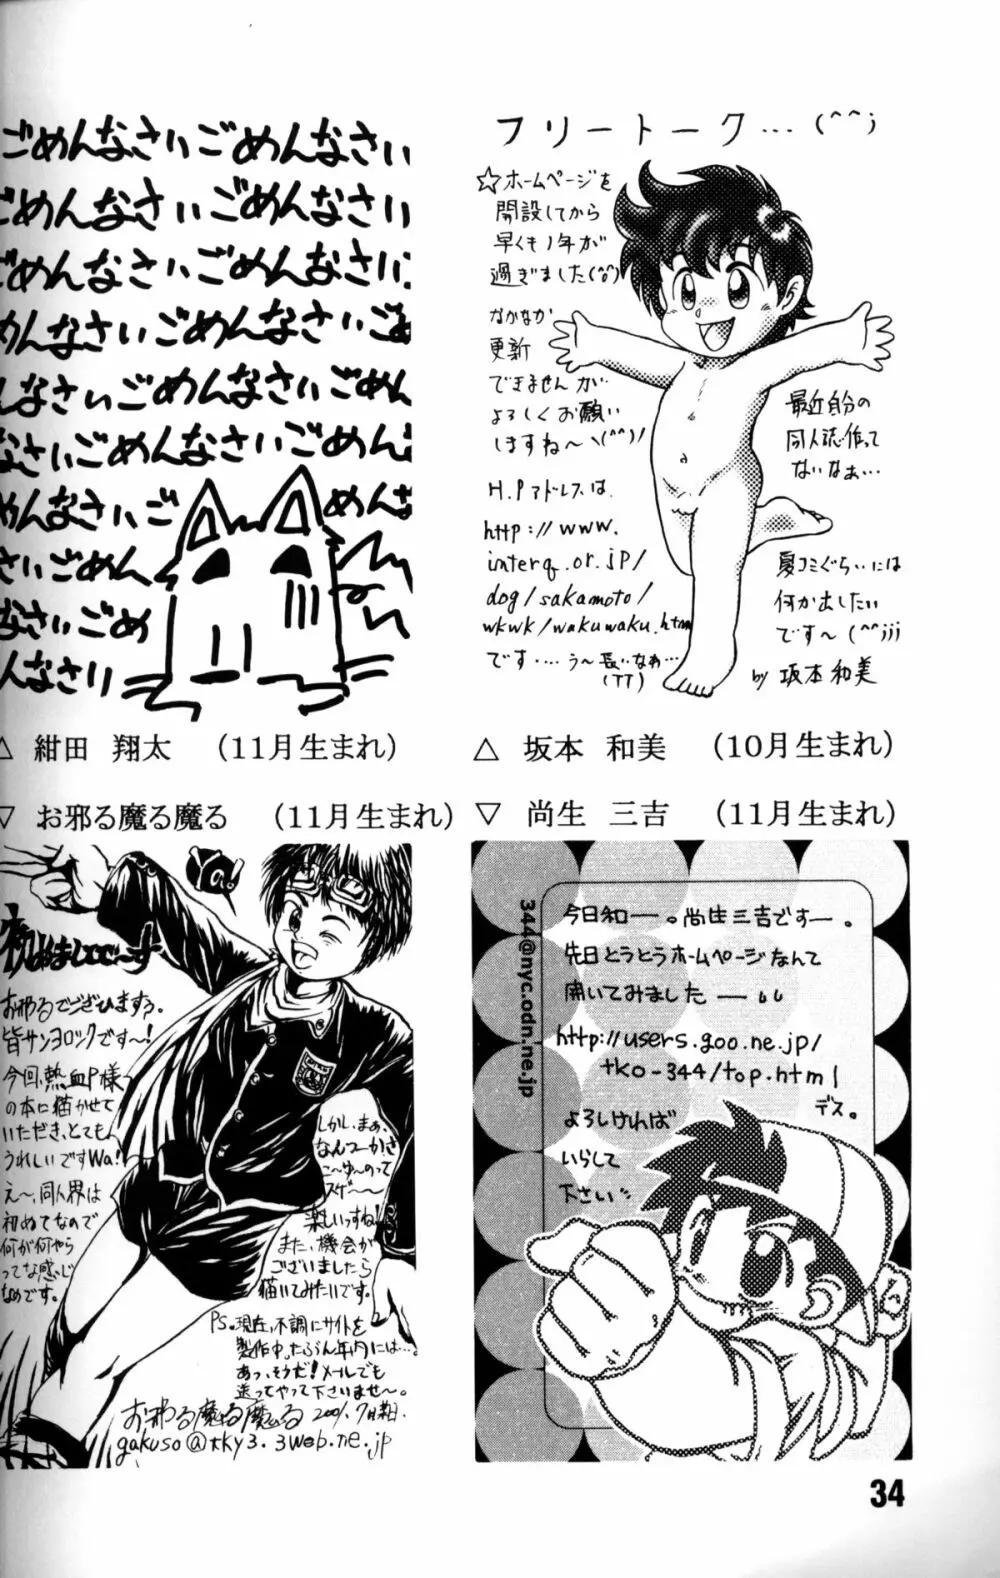 ごめんなさいごめんなさい
ごめんなさいごめんなさい
ごめんなさいごめんなさい
めんなさいごめんなさいごめ
なさいごめんなさいごめん
なさいごめんなさいごめん
めんなさいご
めんな
さいごめん
なさいごめ
んなさい
フリートーク…(^^;)
☆ホームページを
開設してから
早くも1年が
過ぎました(^o^)
なかなか
更新
できませんが
よろしくお願い
しますね〜ヽ(^^)ノ
H.Pアドレスは
http://www.
interq.or.jp/
dog/sakamoto/
wkwk/wakuwaku.htm
です・…う〜長いなぁ…
(TT)
最近自分の
同人誌作って
ないなぁ…
夏コミぐらいには
何か出したい
です〜(^^;;;)
by 坂本和美
△ 紺田 翔太 (11月生まれ)
△ 坂本 和美 (10月生まれ)
▽ お邪る魔る魔る (11月生まれ)
▽ 尚生 三吉 (11月生まれ)
初めましてで〜す
おじゃるでございますぅ。
皆サンヨロックです〜!
今回、熱血P様
の本に描かせて
いただき、とても
うれしいですWa!
え〜、同人界は
初めてなので
何が何やら
ってな感じ
なのです。
しかし、まぁ、
なんつーかさ
こ〜ゆ〜のって
スゲ〜〜
楽しいっすね!
また、機会が
ございましたら
描いてみたいです。
PS.現在、不調にサイトを
製作中。たぶん年内には…。
あっ、そうだ!メールでも
送ってやって下さいませ〜。
お邪る魔る魔る 2001.7月
gakuso@tky3.3web.ne.jp
今日和ー。尚生三吉ですー。
先日とうとうホームページなんて
開いてみました ー
http://users.goo.ne.jp/
tko-344/top.html
デス。
よろしければ
いらして
下さい
344@nyc.odn.ne.jp
34